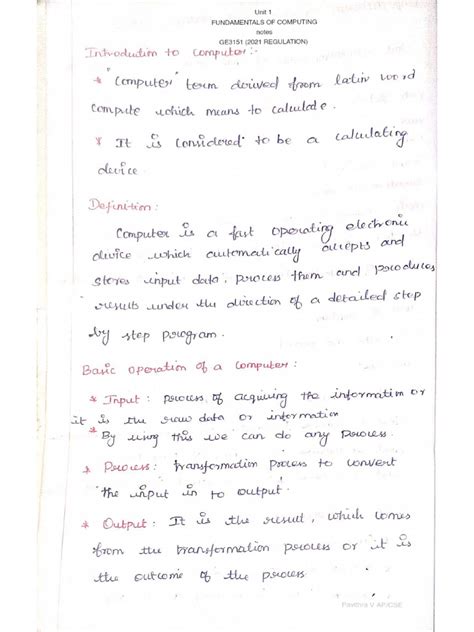 Unit 1
FUNDAMENTALS OF COMPUTING
notes
GE3151 (2021 REGULATION)
Introduction to computer:-
* "Computer" term derived from latin word
compute which means to calculate.
* It is considered to be a calculating
device.
Definition:
Computer is a fast operating electronic
device which automatically accepts and
stores input data, process them and produces
results under the direction of a detailed step
by step program.
Basic operation of a computer:
* Input: process of acquiring the information or
it is the raw data or information
* By using this we can do any process.
* Process: transformation process to convert
the input in to output.
* Output: It is the result, which comes
from the transformation process or it is
the outcome of the process
Pavithra V AP/CSE